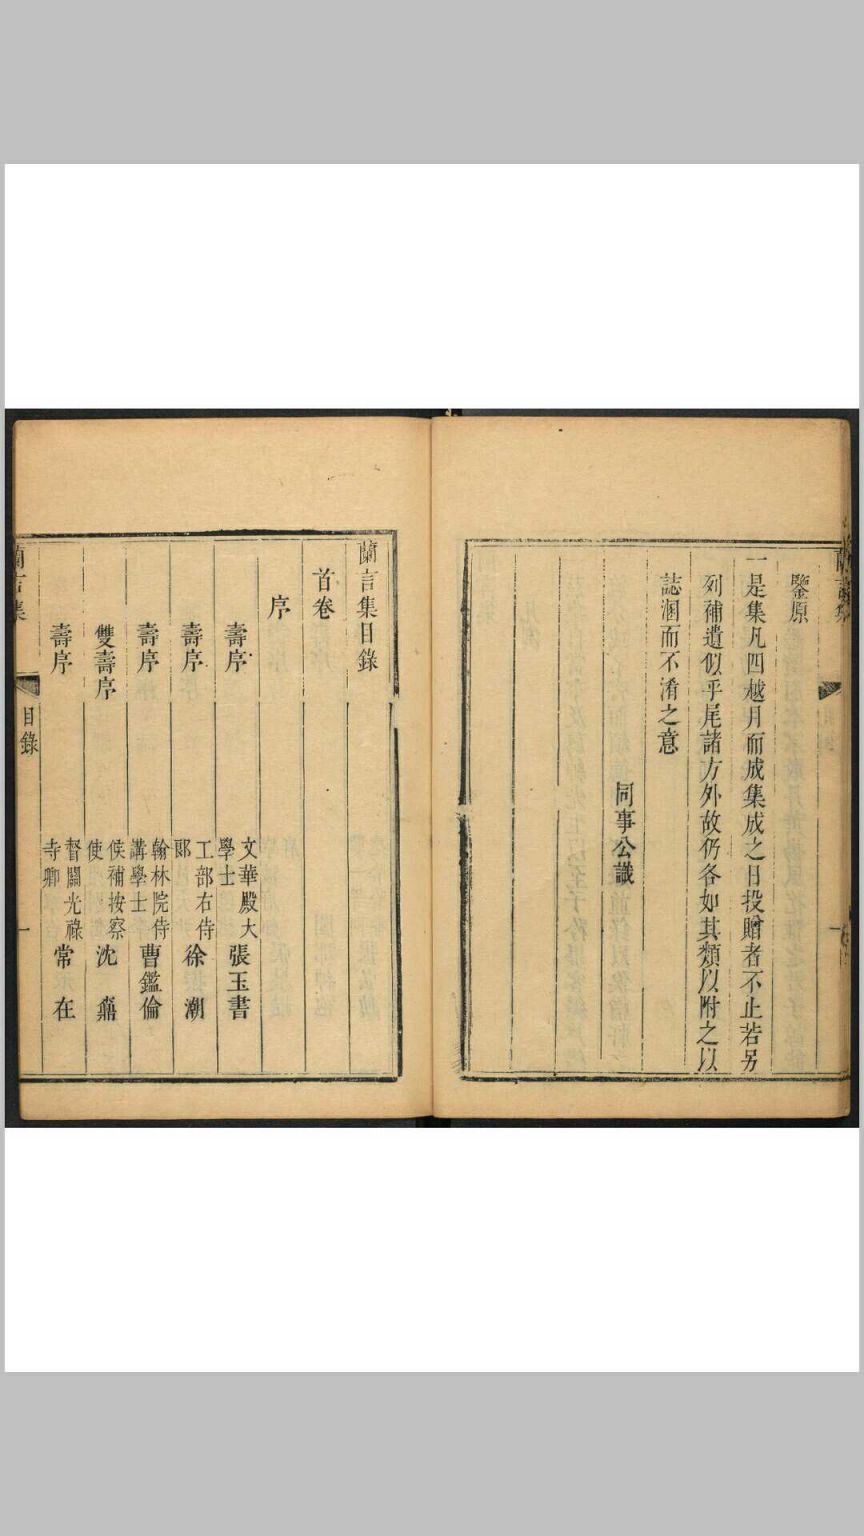 鑒原
一是集凡四越月而成集成之日投贈者不止若另
列補遺似乎尾諸方外故仍各如其類以附之以
誌溷而不淆之意
同事公識
蘭言集目錄
首卷
序
壽序 文華殿大學士 張玉書
壽序 工部右侍郎 徐潮
壽序 翰林院侍講學士 曹鑑倫
雙壽序 候補按察使 沈
壽序 光祿寺卿 常在
蘭言集
目錄
一